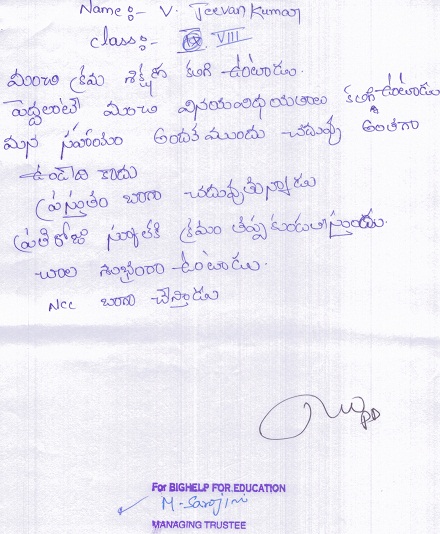 Name :- V. Jeevan Kumar
class :- VIII
మంచి క్రమ శిక్షణ కలిగి ఉంటాడు.
పెద్దలంటే మంచి వినయవిధయతలు కలిగి ఉంటాడు
మన సహాయం అందక ముందు చదువు అంతగా
ఉండేది కాదు
ప్రస్తుతం బాగా చదువుతున్నాడు
ప్రతిరోజు స్కూలుకి క్రమం తప్పకుండా
చాల శుభ్రంగా ఉంటాడు.
NCC బాగా చేస్తాడు
For BIGHELP FOR EDUCATION
M. Sarojini
MANAGING TRUSTEE